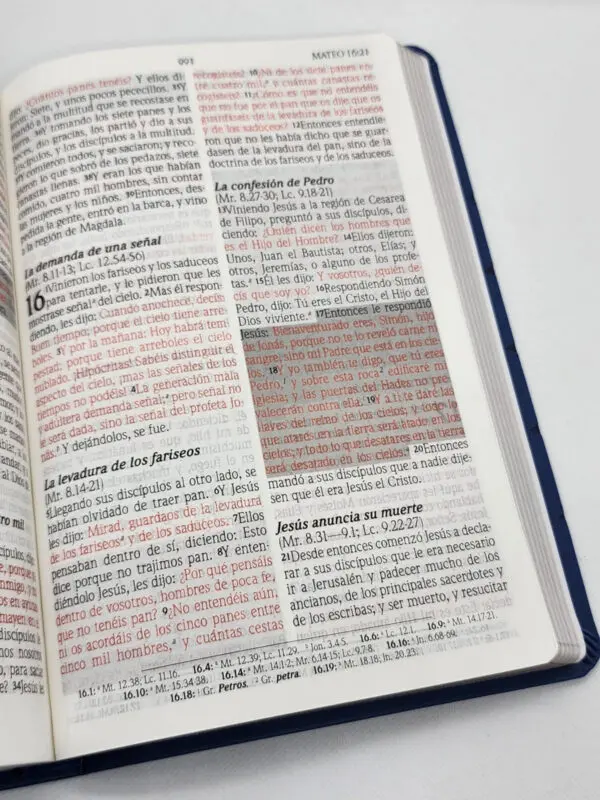 991 MATEO 16:21
¿Cuántos panes tenéis? Y ellos di-
Siete, y unos pocos pececillos. 35Y
a la multitud que se recostase en
36Y tomando los siete panes y los
dio gracias, los partió y dio a sus
y los discípulos a la multitud.
comieron todos, y se saciaron; y reco-
lo que sobró de los pedazos, siete
canastas llenas. 38Y eran los que habían
comido, cuatro mil hombres, sin contar
las mujeres y los niños. 39Entonces, des-
pedida la gente, entró en la barca, y vino
a la región de Magdala.
La demanda de una señal
(Mr. 8.11-13; Lc. 12.54-56)
16 1Vinieron los fariseos y los saduceos
para tentarle, y le pidieron que les
mostrase señala del cielo. 2Mas él respon-
diendo, les dijo: Cuando anochece, decís:
Buen tiempo; porque el cielo tiene arre-
boles. 3Y por la mañana: Hoy habrá tem-
pestad; porque tiene arreboles el cielo
nublado. ¡Hipócritas! Sabéis distinguir el
aspecto del cielo, ¡mas las señales de los
tiempos no podéis! 4La generación mala
y adúltera demanda señal; pero señal no
le será dada, sino la señal del profeta Jo-
nás. Y dejándolos, se fue.
La levadura de los fariseos
(Mr. 8.14-21)
5Llegando sus discípulos al otro lado, se
habían olvidado de traer pan. 6Y Jesús
les dijo: Mirad, guardaos de la levadura
de los fariseos y de los saduceos. 7Ellos
pensaban dentro de sí, diciendo: Esto
dice porque no trajimos pan. 8Y enten-
diéndolo Jesús, les dijo: ¿Por qué pensáis
dentro de vosotros, hombres de poca fe,
que no tenéis pan? 9¿No entendéis aún,
ni os acordáis de los cinco panes entre
cinco mil hombres, y cuántas cestas
recogisteis? 10¿Ni de los siete panes en-
tre cuatro mil, y cuántas canastas re-
cogisteis? 11¿Cómo es que no entendéis
que no fue por el pan que os dije que os
guardaseis de la levadura de los fariseos
y de los saduceos? 12Entonces entendie-
ron que no les había dicho que se guar-
dasen de la levadura del pan, sino de la
doctrina de los fariseos y de los saduceos.
La confesión de Pedro
(Mr. 8.27-30; Lc. 9.18-21)
13Viniendo Jesús a la región de Cesarea
de Filipo, preguntó a sus discípulos, di-
ciendo: ¿Quién dicen los hombres que
es el Hijo del Hombre? 14Ellos dijeron:
Unos, Juan el Bautista; otros, Elías; y
otros, Jeremías, o alguno de los profe-
tas. 15Él les dijo: Y vosotros, ¿quién de-
cís que soy yo? 16Respondiendo Simón
Pedro, dijo: Tú eres el Cristo, el Hijo del
Dios viviente. 17Entonces le respondió
Jesús: Bienaventurado eres, Simón, hijo
de Jonás, porque no te lo reveló carne ni
sangre, sino mi Padre que está en los cie-
los. 18Y yo también te digo, que tú eres
Pedro, y sobre esta roca edificaré mi
iglesia; y las puertas del Hades no pre-
valecerán contra ella. 19Y a ti te daré las
llaves del reino de los cielos; y todo lo
que atares en la tierra será atado en los
cielos; y todo lo que desatares en la tierra
será desatado en los cielos. 20Entonces
mandó a sus discípulos que a nadie dije-
sen que él era Jesús el Cristo.
Jesús anuncia su muerte
(Mr. 8.31—9.1; Lc. 9.22-27)
21Desde entonces comenzó Jesús a decla-
rar a sus discípulos que le era necesario
ir a Jerusalén y padecer mucho de los
ancianos, de los principales sacerdotes y
de los escribas; y ser muerto, y resucitar
16.1: Mt. 12.38; Lc. 11.16. 16.4: Mt. 12.39; Lc. 11.29. Jon. 3.4-5. 16.6: Lc. 12.1. 16.9: Mt. 14.17-21.
16.10: Mt. 15.34-38. 16.14: Mt. 14.1-2; Mr. 6.14-15; Lc. 9.7-8. 16.16: Jn. 6.68-69.
16.18: Gr. Petros. Gr. petra. 16.19: Mt. 18.18; Jn. 20.23.